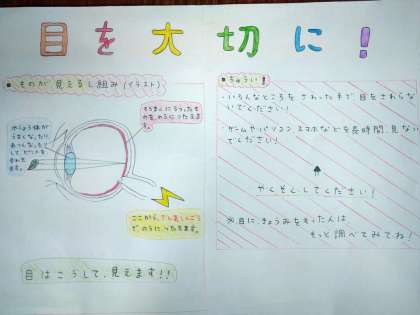 目を大切に!
ものが見えるし組み(イラスト)
もうまくにうつったもの
を、のうにつたえます。
すいしょう体が
うすくなったり
あつくなったり
して、ピントを
合わせます。
ここから、でん気しんごう
でのうにつたえます。
目はこうして、見えます!!
ちゅうい!
・いろんなところをさわった手で目をさわらな
いでください!
・ゲームやパソコン スマホなどを長時間、見ない
でください!
やくそくしてください!
※目にきょうみをもった人は
もっと調べてみてね!